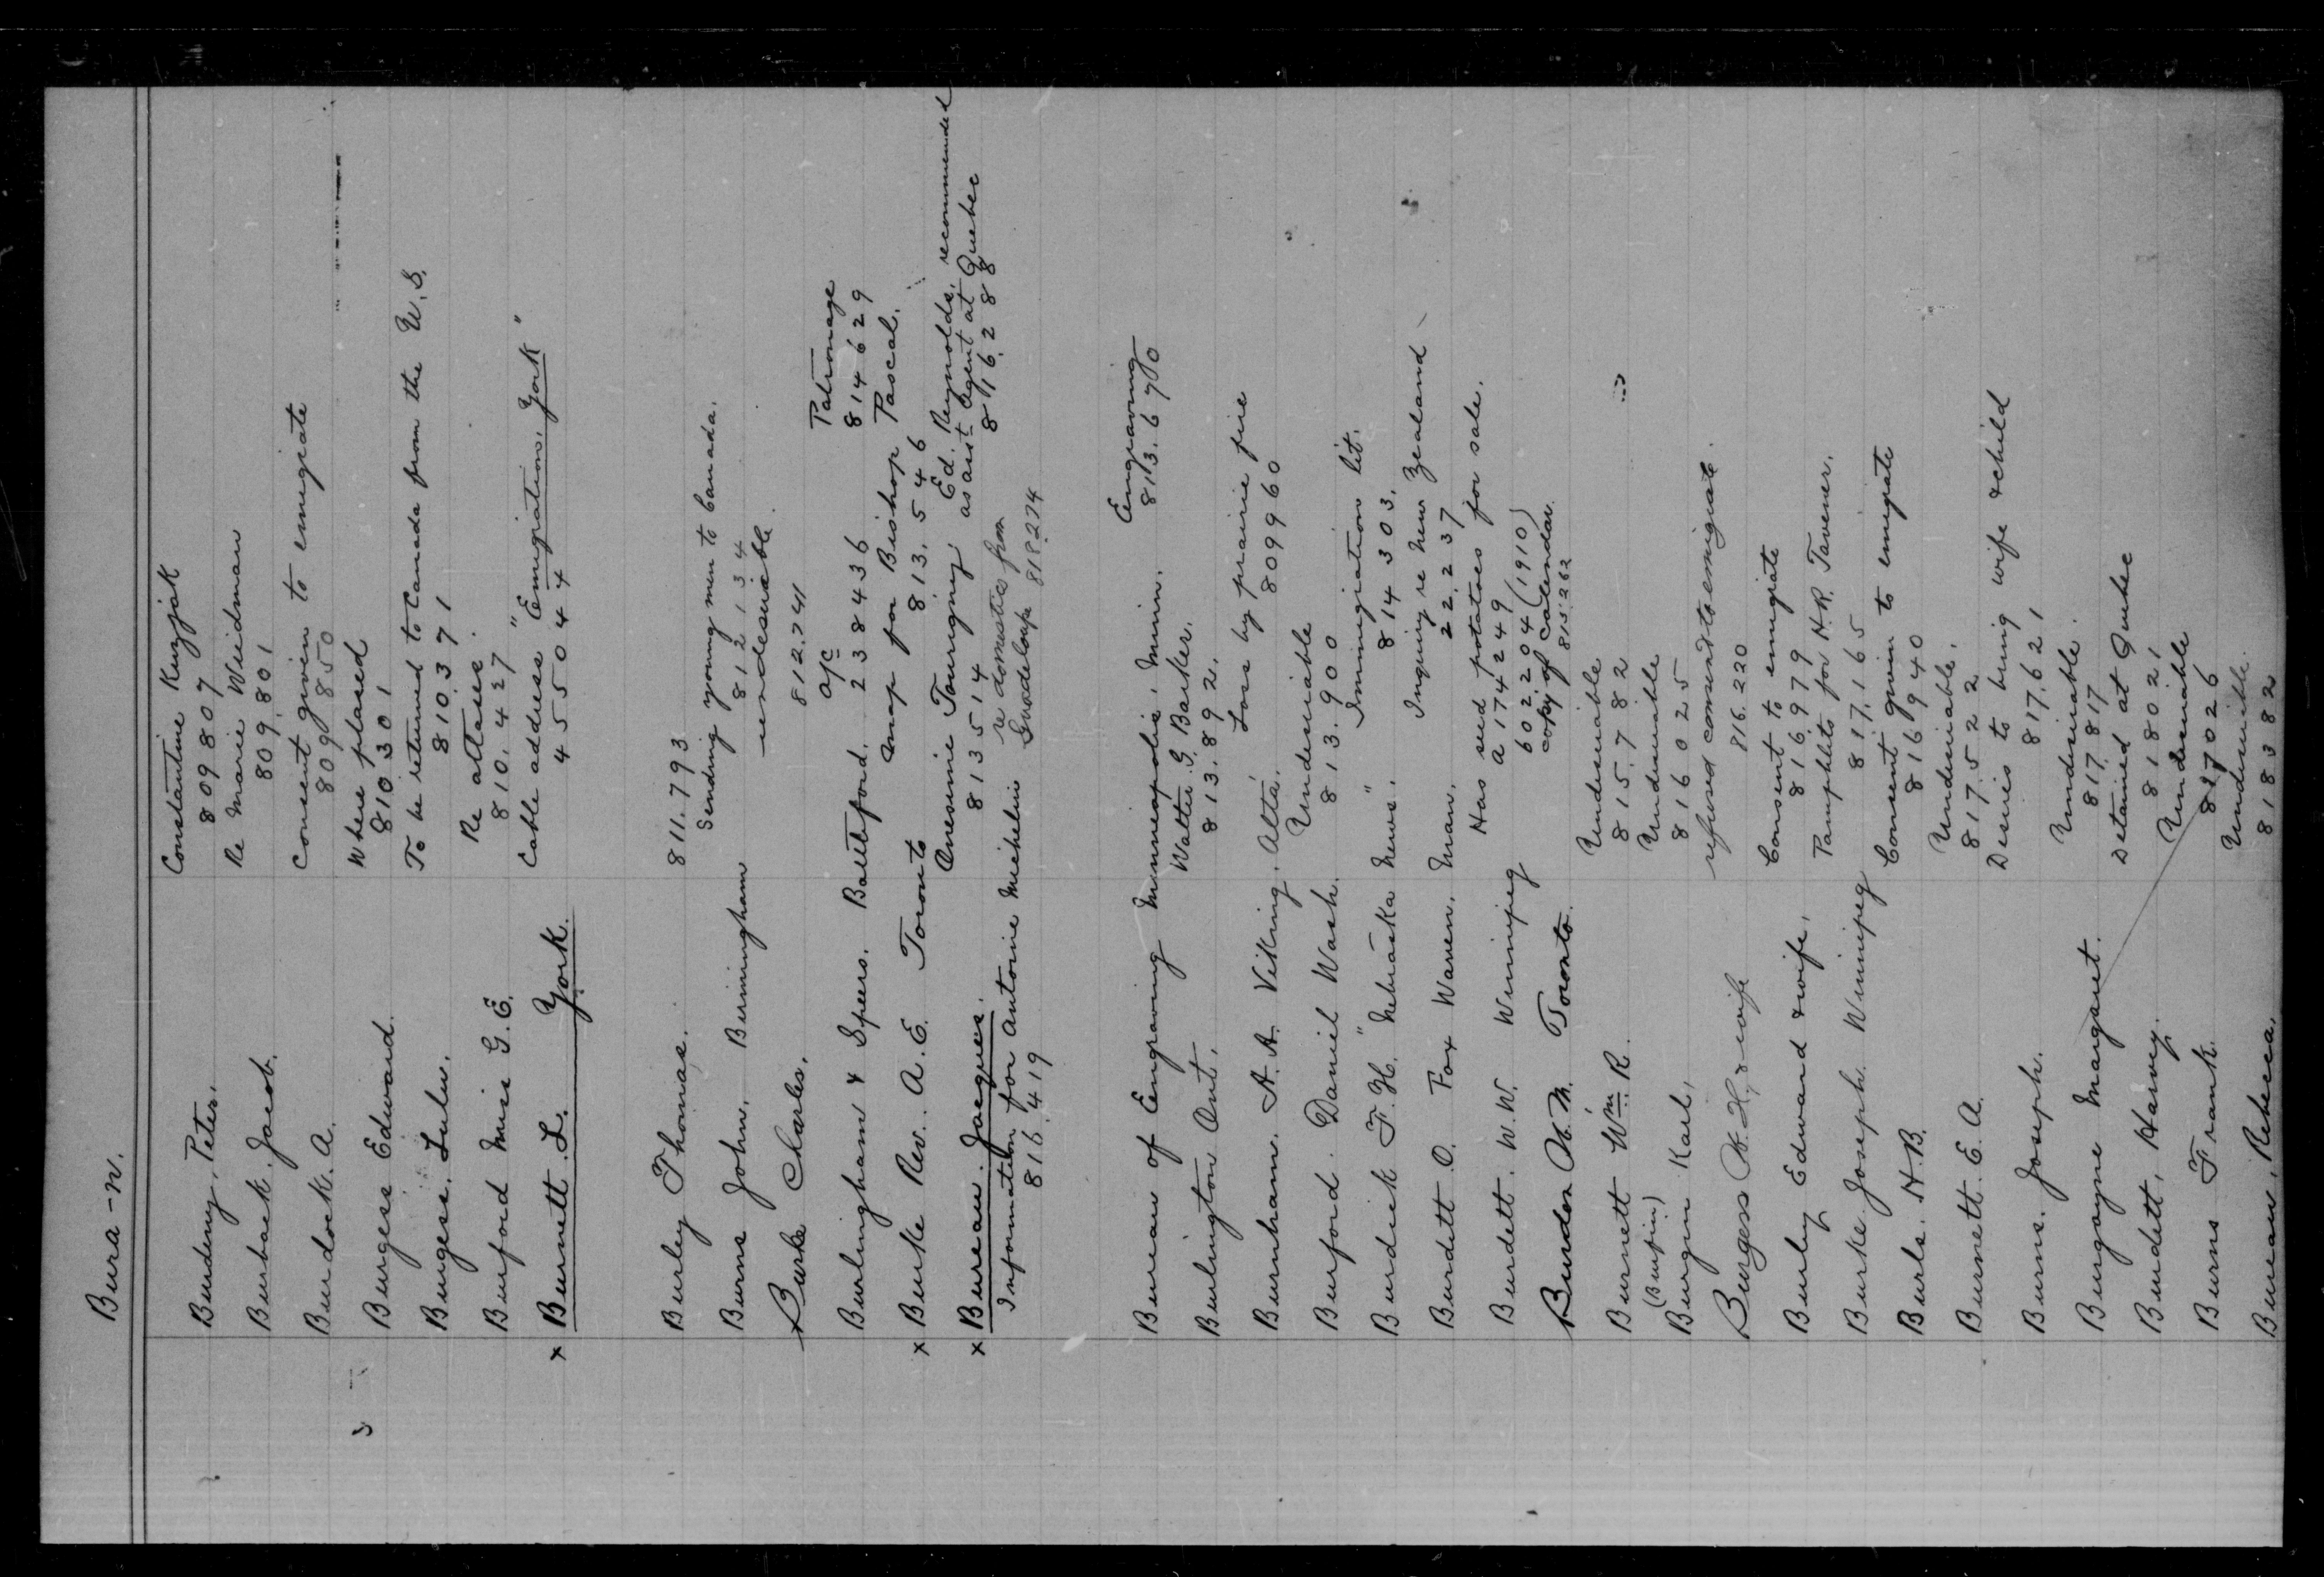 Bura-n.
Constantine Kuzjak
Burdeny, Peter.
809807
Re Marie Weidman
Burback. Jacob.
809,801
Consent given to emigrate
Burdock. A.
809850
Where placed
Burgess Edward.
810301
To be returned to Canada from the U.S.
Burgess. Lulu.
810371
Re attaser.
Burford Miss G.E.
810.427
Cable address "Emigration, York"
x Burnett. L. York.
455044
Burley Thomas.
811.793
Sending young men to Canada.
Burns John, Birmingham
812134
undesirable.
Burke Charles.
812.741
a/c Patronage
Burlingham & Speers. Battleford. 238436 814629
Map for Bishop Pascal.
x Burke Rev. A.E. Toronto 813.546
Onesime Tourigny Ed. Reynolds, recommended
as asst agent at Quebec
x Bureau. Jacques. 813514 816.288
re domestics from
Information for Antoine Michelin Guadeloupe 818274
816.419
Engraving
Bureau of Engraving Minneapolis, Minn. 813.670
Walter G. Barker.
Burlington Ont. 813.892.
Loss by prairie fire
Burnham. A.A. Viking. Alta. 809960
Undesirable
Burford. Daniel Wash. 813.900
Immigration lit.
Burdick F.H. "Nebraska News". 814303.
Inquiring re New Zealand
Burditt O. Fox Warren, Man. 22.237
Has seed potatoes for sale.
a 174249
Burdett. W.W. Winnipeg 602204 (1910)
copy of Calendar.
Burdon W.M. Toronto. 815.262
Undesirable
Burnett Wm. R. 815.782
(Burfin) Undesirable
Burgin Karl, 816025
refused consent to emigrate.
Burgess W.H, & wife 816.220
Consent to emigrate
Burley Edward & wife. 816979
Pamphlets for H.R. Tavener.
Burke Joseph. Winnipeg 817,165
Consent given to emigrate
Burls. H.B. 816940
Undesirable.
Burnett. E. A. 817522
Desires to bring wife & child
Burns. Joseph. 817.621
Undesirable.
Burgayne Margaret. 817817
Detained at Quebec
Burdett, Harvey. 818021
Undesirable
Burns Frank. 817026
Undesirable.
Bureau, Rebecca. 818382